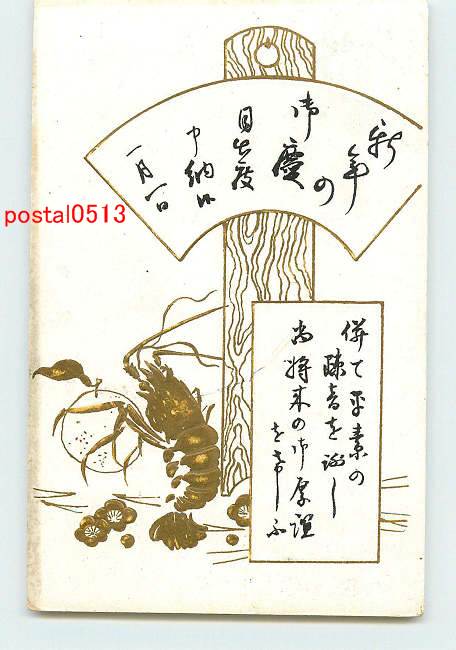 新年
御慶の
目出度
申納候
一月一日
併て平素の
疎音を謝し
尚将来の御厚誼
を希ふ
postal0513